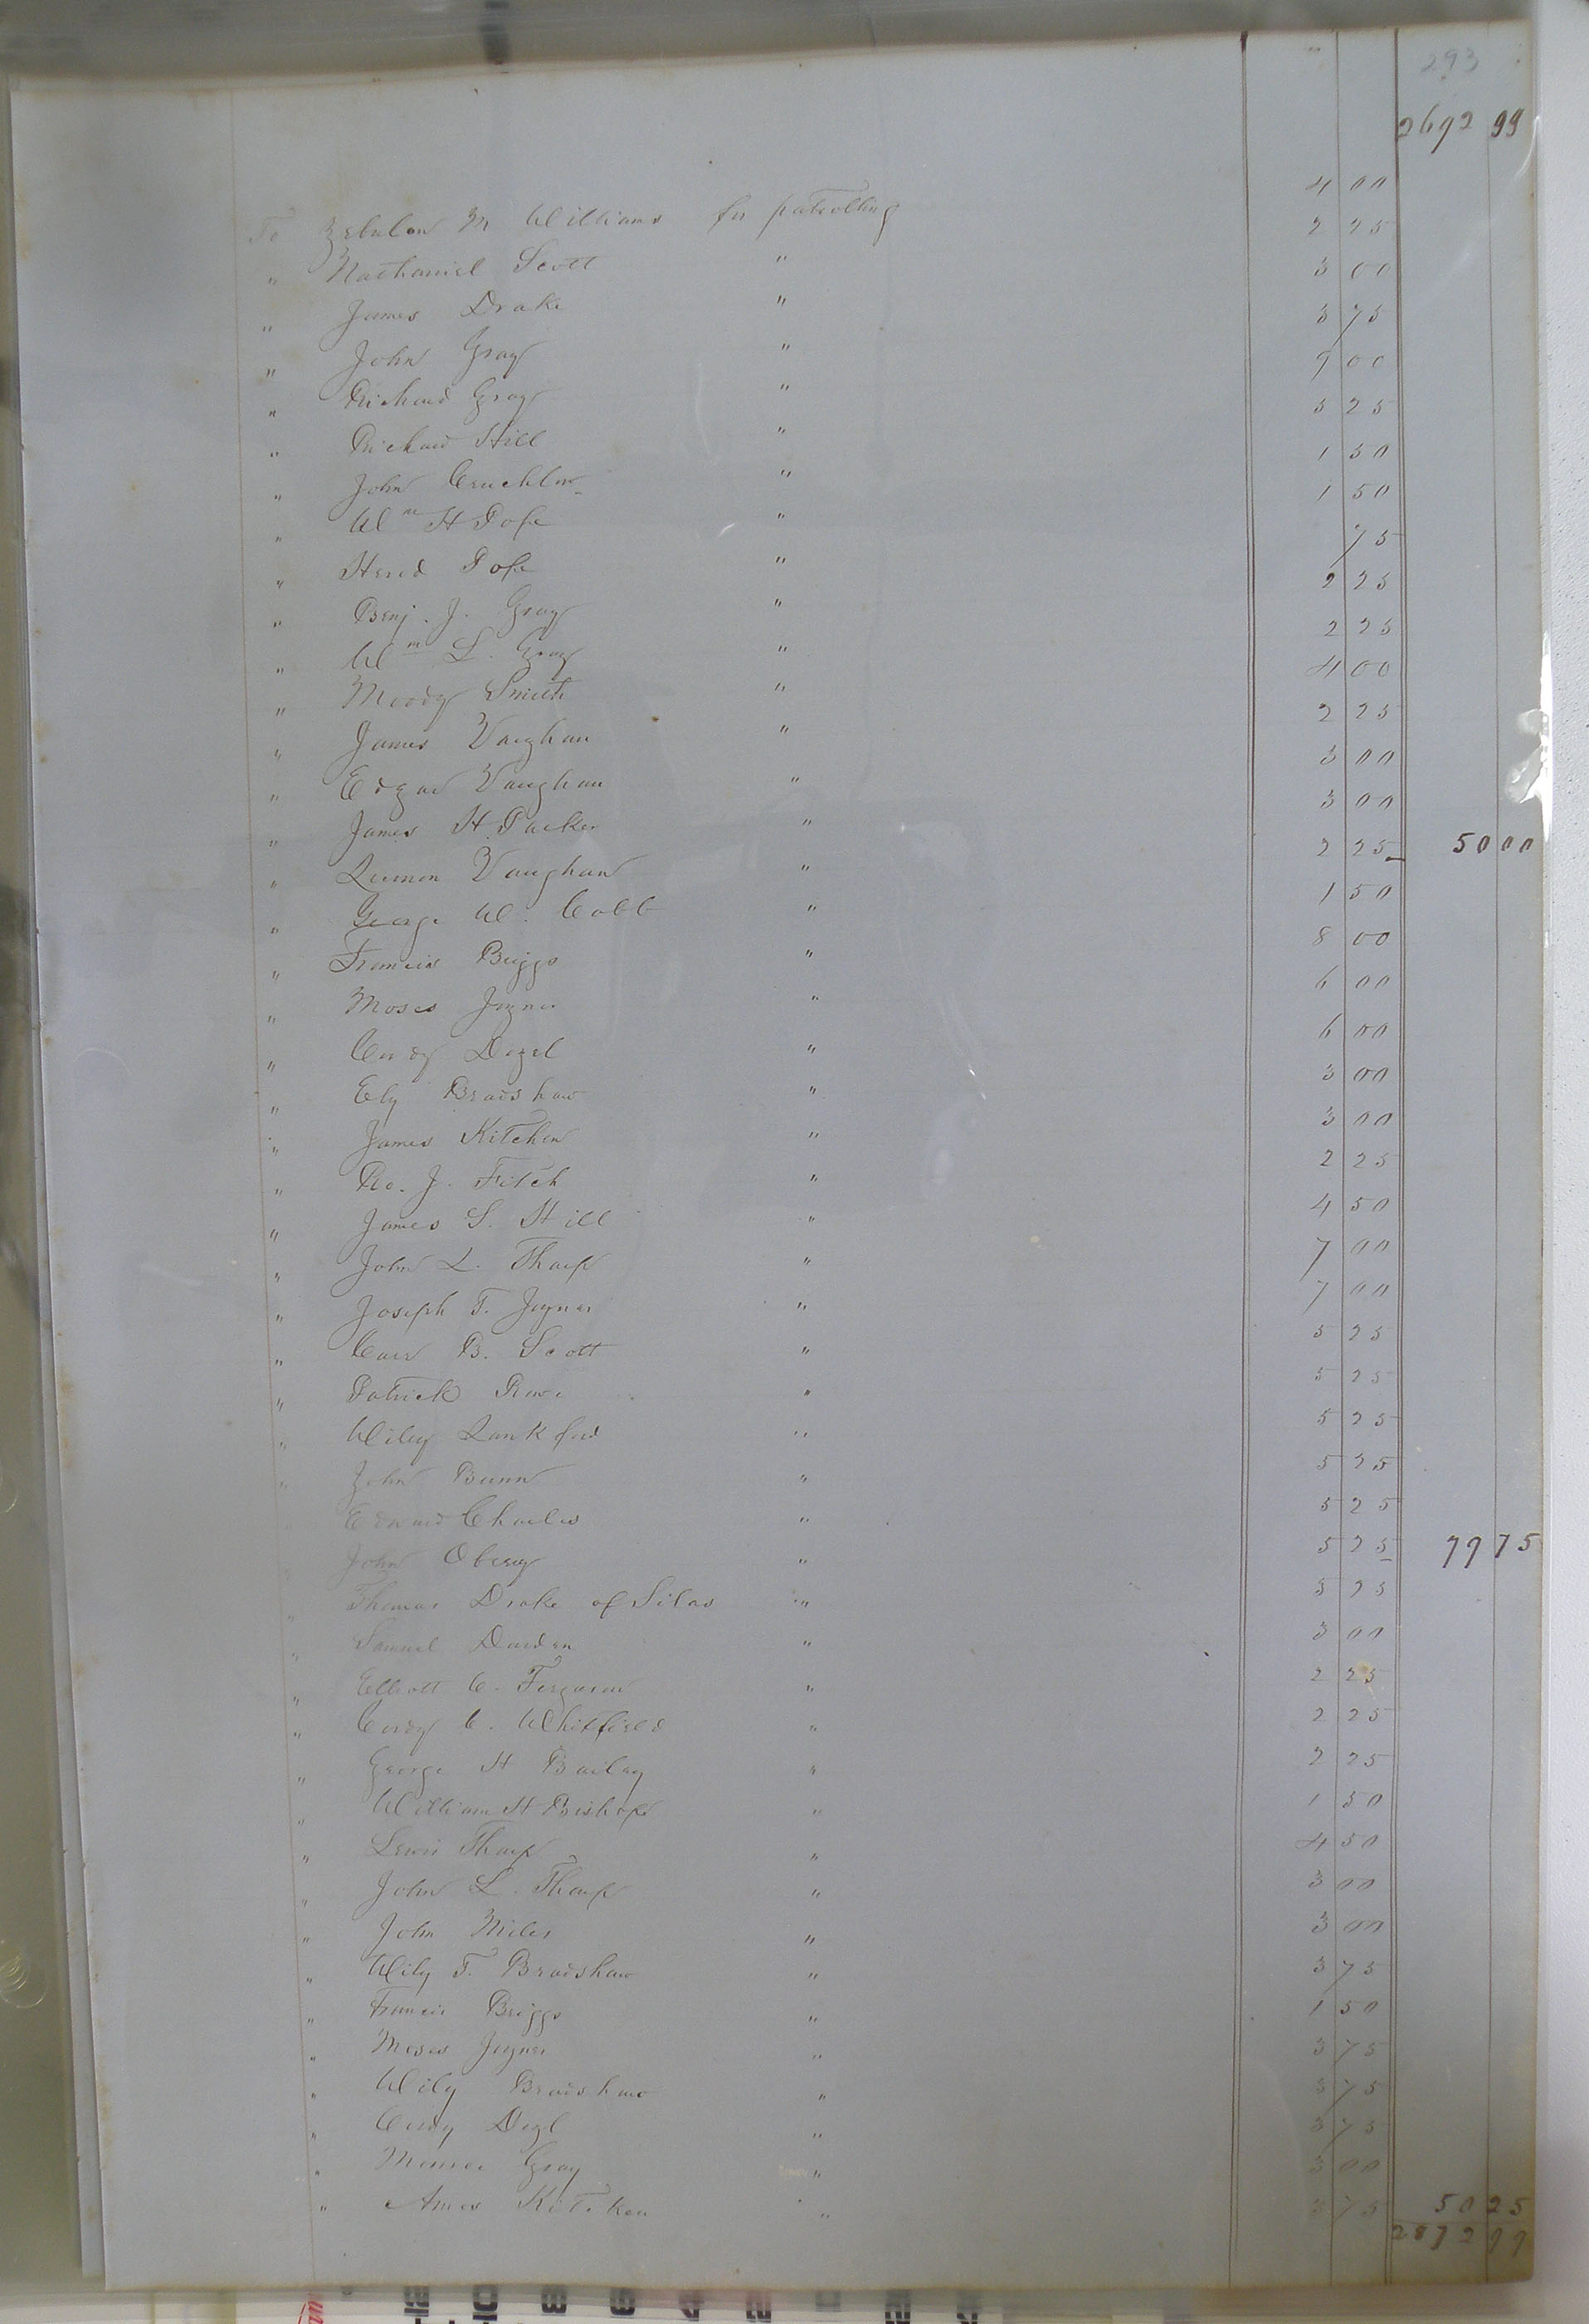 293
2692 99
To Zebulon M Williams for patrolling 4 00
" Nathaniel Scott " 2 25
" James Drake " 3 00
" John Gray " 3 75
" Richard Gray " 9 00
" Richard Hill " 5 25
" John Cruchlow " 1 50
" Wm H Pope " 1 50
" Hered Pope " 75
" Benj. J. Gray " 2 25
" Wm L. Gray " 2 25
" Moody Smith " 4 00
" James Vaughan " 2 25
" Edgar Vaughan " 3 00
" James H Parker " 3 00
" Lemon Vaughan " 2 25 50 00
" George W. Cobb " 1 50
" Francis Briggs " 8 00
" Moses Joyner " 6 00
" Cordy Dozel " 6 00
" Ely Bradshaw " 3 00
" James Kitchen " 3 00
" Ro. J. Fitch " 2 25
" James S. Hill " 4 50
" John L. Tharp " 7 00
" Joseph T. Joyner " 7 00
" Carr B. Scott " 5 25
" Patrick Rowe " 5 25
" Wiley Lankford " 5 25
" John Bunn " 5 25
" Edward Charles " 5 25
" John Obery " 5 25 79 75
" Thomas Drake of Silas " 5 25
" Samuel Darden " 3 00
" Elliott C. Ferguson " 2 25
" Cordy C. Whitfield " 2 25
" George H Bailey " 2 25
" William H Bishop " 1 50
" Lewis Tharp " 4 50
" John L. Tharp " 3 00
" John Miles " 3 00
" Wily T. Bradshaw " 3 75
" Francis Briggs " 1 50
" Moses Joyner " 3 75
" Wily Bradshaw " 3 75
" Cordy Dozl " 3 75
" Monroe Gray " 3 00
" Amos Kitchen " 3 75 50 25
2872 99